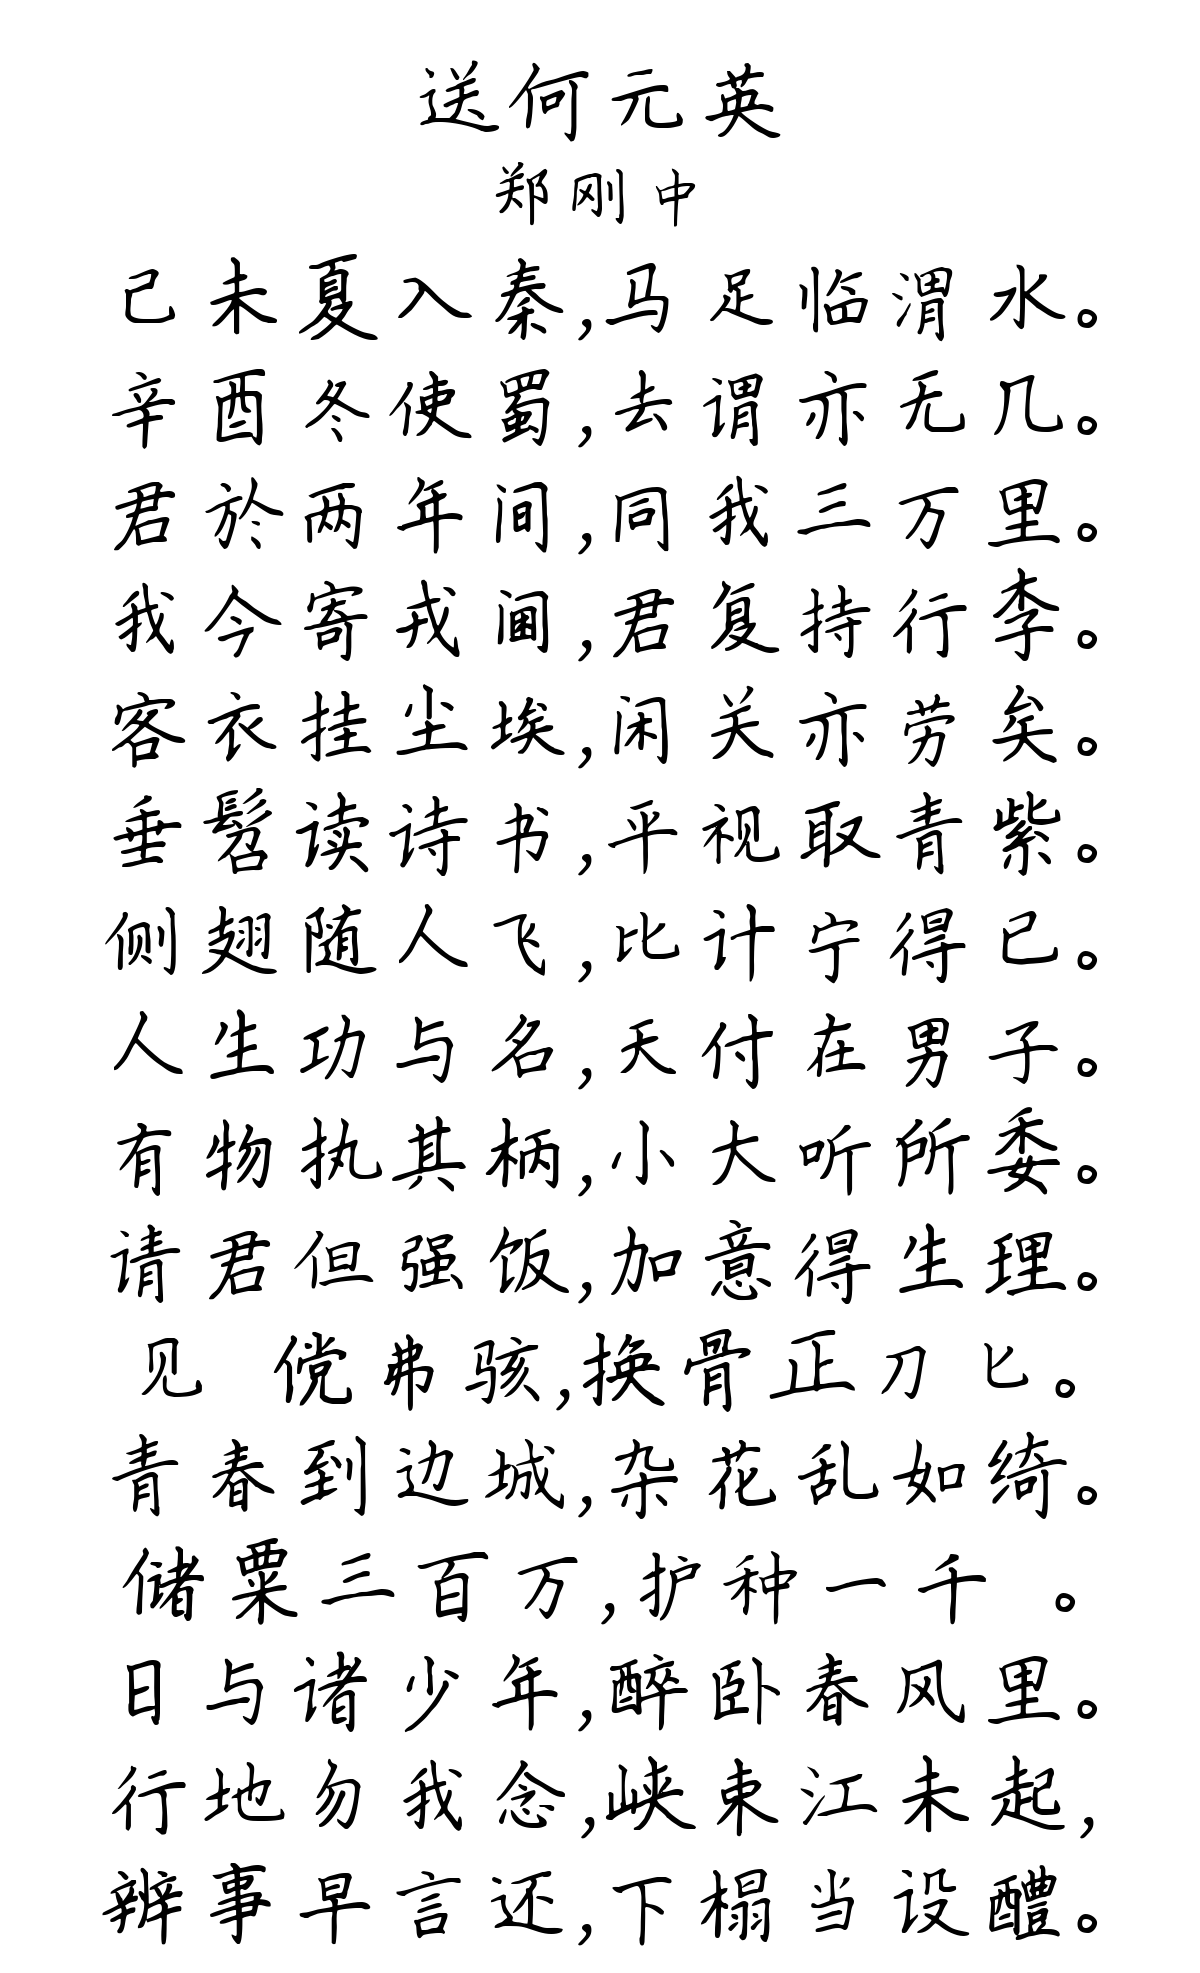 送何元英
郑刚中
己未夏入秦,马足临渭水。
辛酉冬使蜀,去谓亦无几。
君於两年间,同我三万里。
我今寄戎阃,君复持行李。
客衣挂尘埃,闲关亦劳矣。
垂髫读诗书,平视取青紫。
侧翅随人飞,比计宁得已。
人生功与名,天付在男子。
有物执其柄,小大听所委。
请君但强饭,加意得生理。
见 傥弗骇,换骨正刀匕。
青春到边城,杂花乱如绮。
储粟三百万,护种一千 。
日与诸少年,醉卧春风里。
行地勿我念,峡束江未起,
辨事早言还,下榻当设醴。